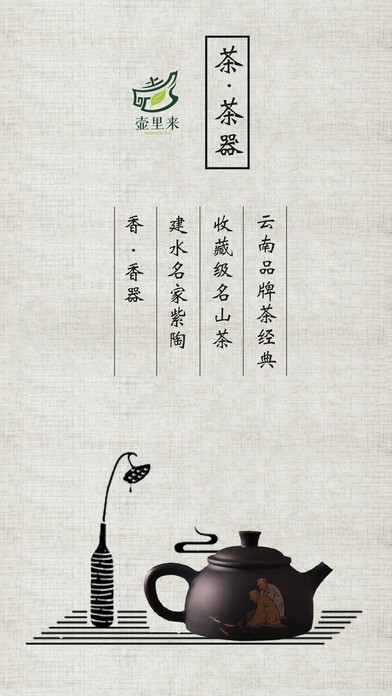 茶·茶器
壶里来
云南品牌茶经典
收藏级名山茶
建水名家紫陶
香·香器